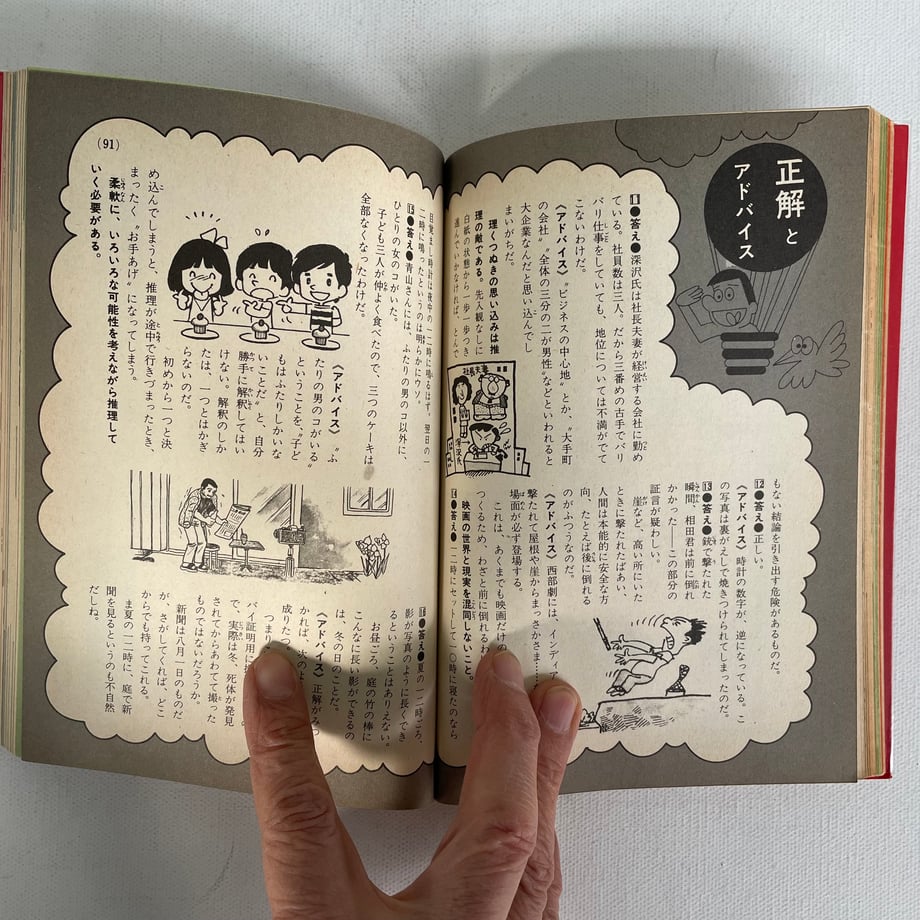 正解と
アドバイス
11●答え●深沢氏は社長夫妻が経営する会社に勤め
ている。社員数は三人。だから三番めの古手でバリ
バリ仕事をしていても、地位については不満がでて
こないわけだ。
〈アドバイス〉“ビジネスの中心地”とか、“大手町
の会社”“全体の三分の二が男性”などといわれると
大企業なんだと思い込んでし
まいがちだ。
理くつぬきの思い込みは推
理の敵である。先入観なしに
白紙の状態から一歩一歩つき
進んでいかなければ、とんで
社長夫妻
深沢氏
もない結論を引き出す危険があるものだ。
12●答え●正しい。
〈アドバイス〉時計の数字が、逆になっている。こ
の写真は裏がえしで焼きつけられてしまったのだ。
13●答え●銃で撃たれた
瞬間、相田君は前に倒れ
かかった——この部分の
証言が疑わしい。
崖など、高い所にいた
ときに撃たれたばあい、
人間は本能的に安全な方
向、たとえば後に倒れる
のがふつうなのだ。
〈アドバイス〉西部劇には、インディア
撃たれて屋根や崖からまっさかさま……
場面が必ず登場する。
これは、あくまでも映画だけの
つくるため、わざと前に倒れるわ
映画の世界と現実を混同しないこと。
14●答え●一二時にセットして一〇時に寝たのなら
目覚まし時計は夜中の一二時に鳴るはず。翌日の一
二時に鳴ったというのは明らかにウソ。
15●答え●青山さんには、ふたりの男のコ以外に、
ひとりの女のコがいた。
子ども三人が仲よく食べたので、三つのケーキは
全部なくなったわけだ。
〈アドバイス〉“ふ
たりの男のコがいる”
ということを、“子ど
もはふたりしかいな
いことだ”と、自分
勝手に解釈してはい
けない。解釈のしか
たは、一つとはかぎ
らないのだ。
初めから一つと決
め込んでしまうと、推理が途中で行きづまったとき、
まったく“お手あげ”になってしまう。
柔軟に、いろいろな可能性を考えながら推理して
いく必要がある。
16●答え●夏の一二時ごろ、
影が写真のように長くでき
るということはありえない。
お昼ごろ、庭の竹の棒に
こんなに長い影ができるの
は、冬の日のことだ。
〈アドバイス〉正解がみつ
かれば、次のよ
成りたつ。
つまり
バイ証明用に
で、実際は冬、死体が発見
されてからあわてて撮った
ものではないだろうか。
新聞は八月一日のものだ
が、さがしてくれば、どこ
からでも持ってこれる。
ま夏の一二時に、庭で新
聞を見るというのも不自然
だしね。
(91)